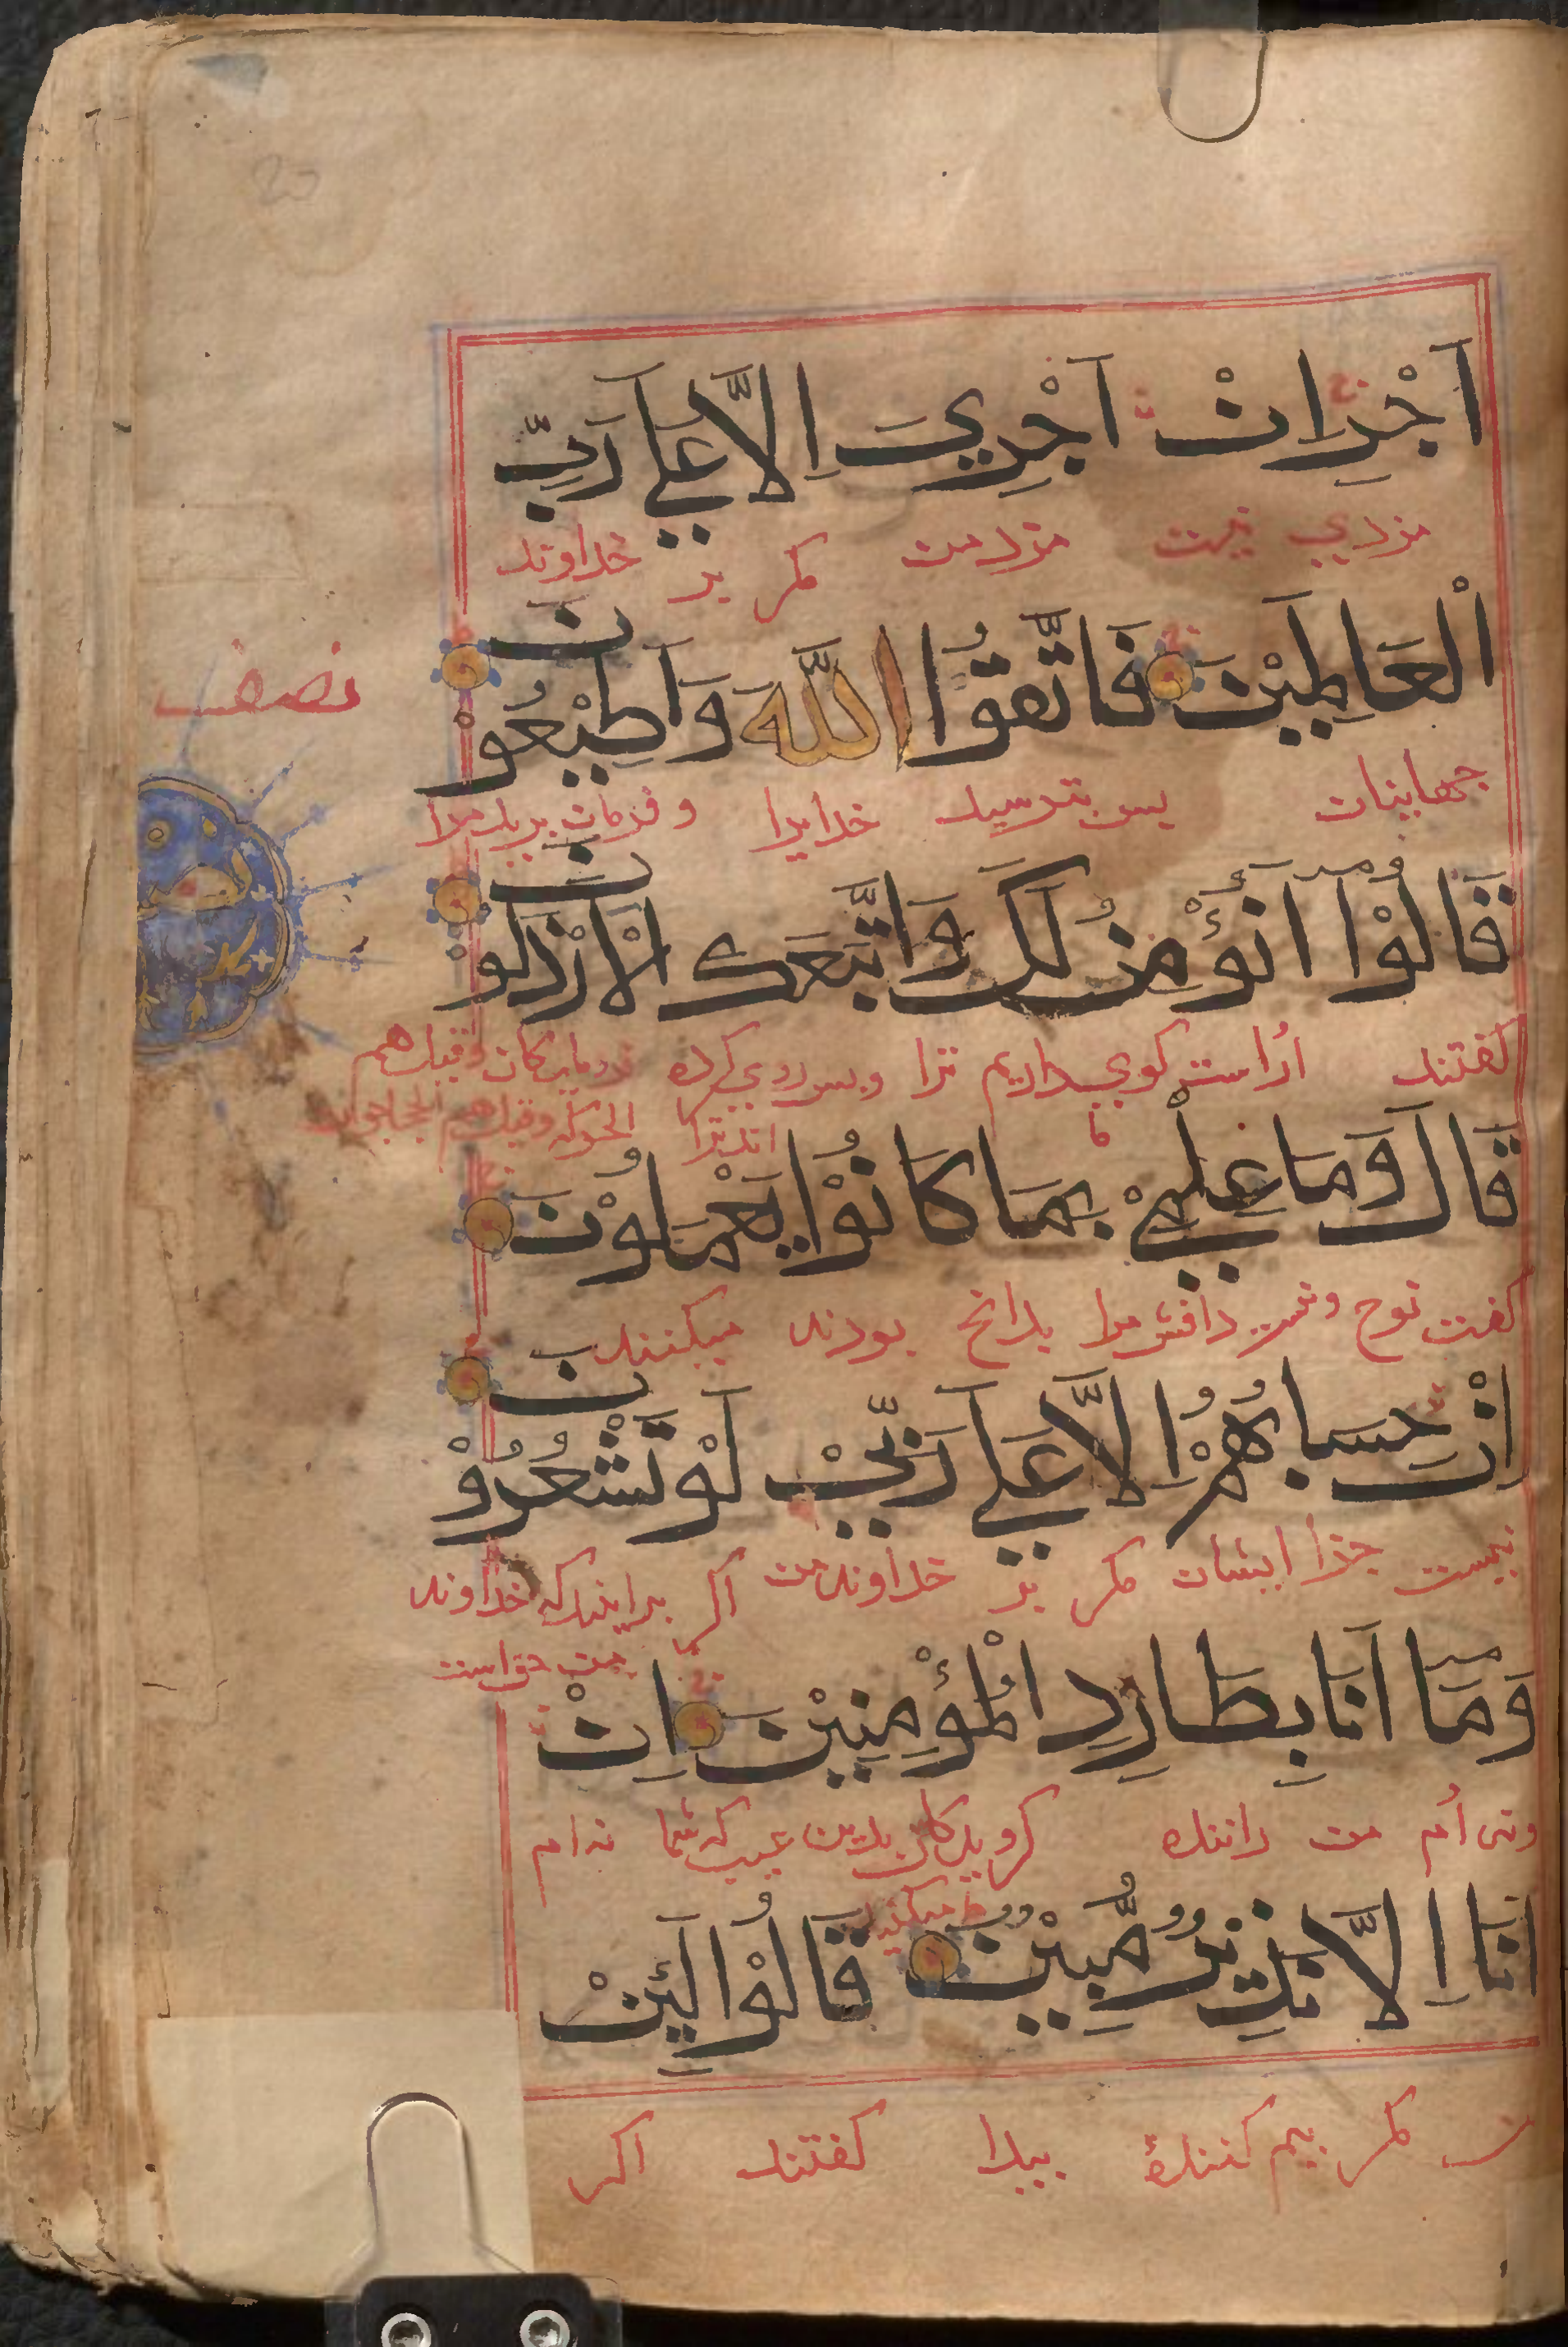 اَجْرٍ اِنْ اَجْرِيَ اِلَّا عَلَي رَبِّ
مزدي نیست مزد من مکر بر خداوند
الْعَالَمِيْنَ فَاتَّقُوْا اللّٰهَ وَاَطِيْعُوْنِ
نصف
جهانیان پس بترسید خدایرا و فرمان برید مرا
قَالُوْا اَنُؤْمِنُ لَكَ وَاتَّبَعَكَ الْاَرْذَلُوْنَ
کفتند اراست کوي داریم ترا و پس روي کرده فرومایکان وقیل هم
اند ترا الحوکه وقیل هم الحجامون
قَالَ وَمَا عِلْمِيْ بِمَا كَانُوْا يَعْمَلُوْنَ
کفت نوح و نیست دانش مرا بدانچ بودند میکنند
اِنْ حِسَابُهُمْ اِلَّا عَلَي رَبِّيْ لَوْ تَشْعُرُوْنَ
نیست جزا ایشان مکر بر خداوند من اکر بدانیدکه خداوند
من حق است
وَمَا اَنَا بِطَارِدِ الْمُؤْمِنِيْنَ اِنْ
ونی ام من راننده کرویدکان بدین عیب که شما نه ام
میکنید
اَنَا اِلَّا نَذِيْرٌ مُّبِيْنٌ قَالُوْا لَئِنْ
من مکر بیم کنندۀ پیدا کفتند اکر